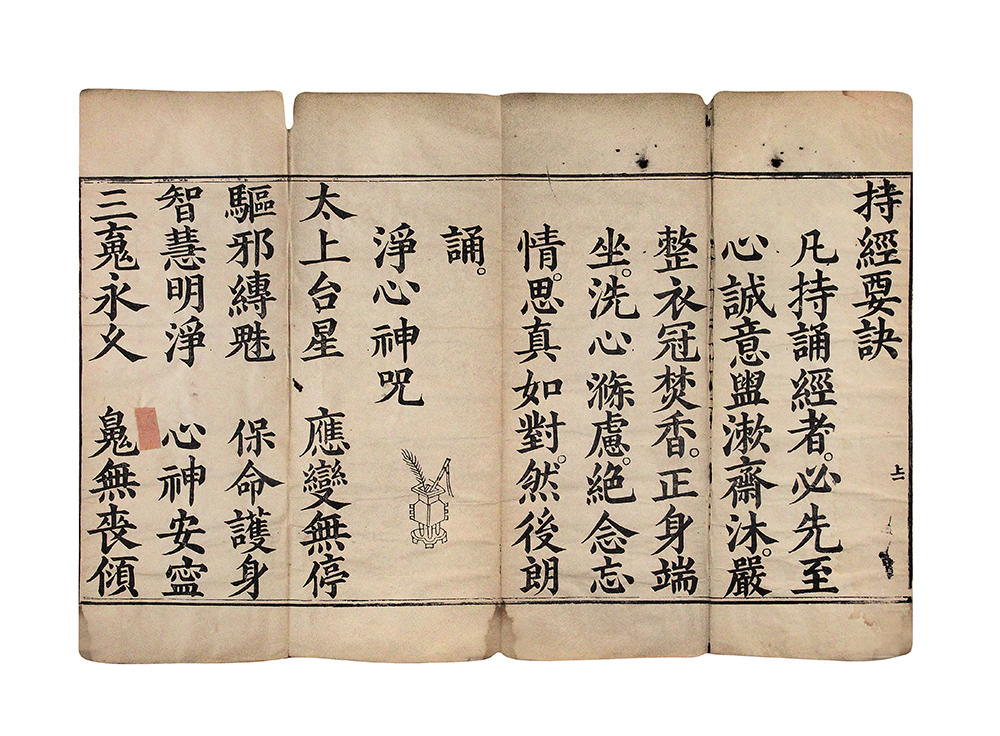 持經要訣
凡持誦經者。必先至
心誠意盥漱齋沐。嚴
整衣冠焚香。正身端
坐。洗心滌慮。絕念忘
情。思真如對。然後朗
誦。
淨心神咒
太上台星　應變無停
驅邪縛魅　保命護身
智慧明淨　心神安寍
三魂永久　魄無喪傾
上二